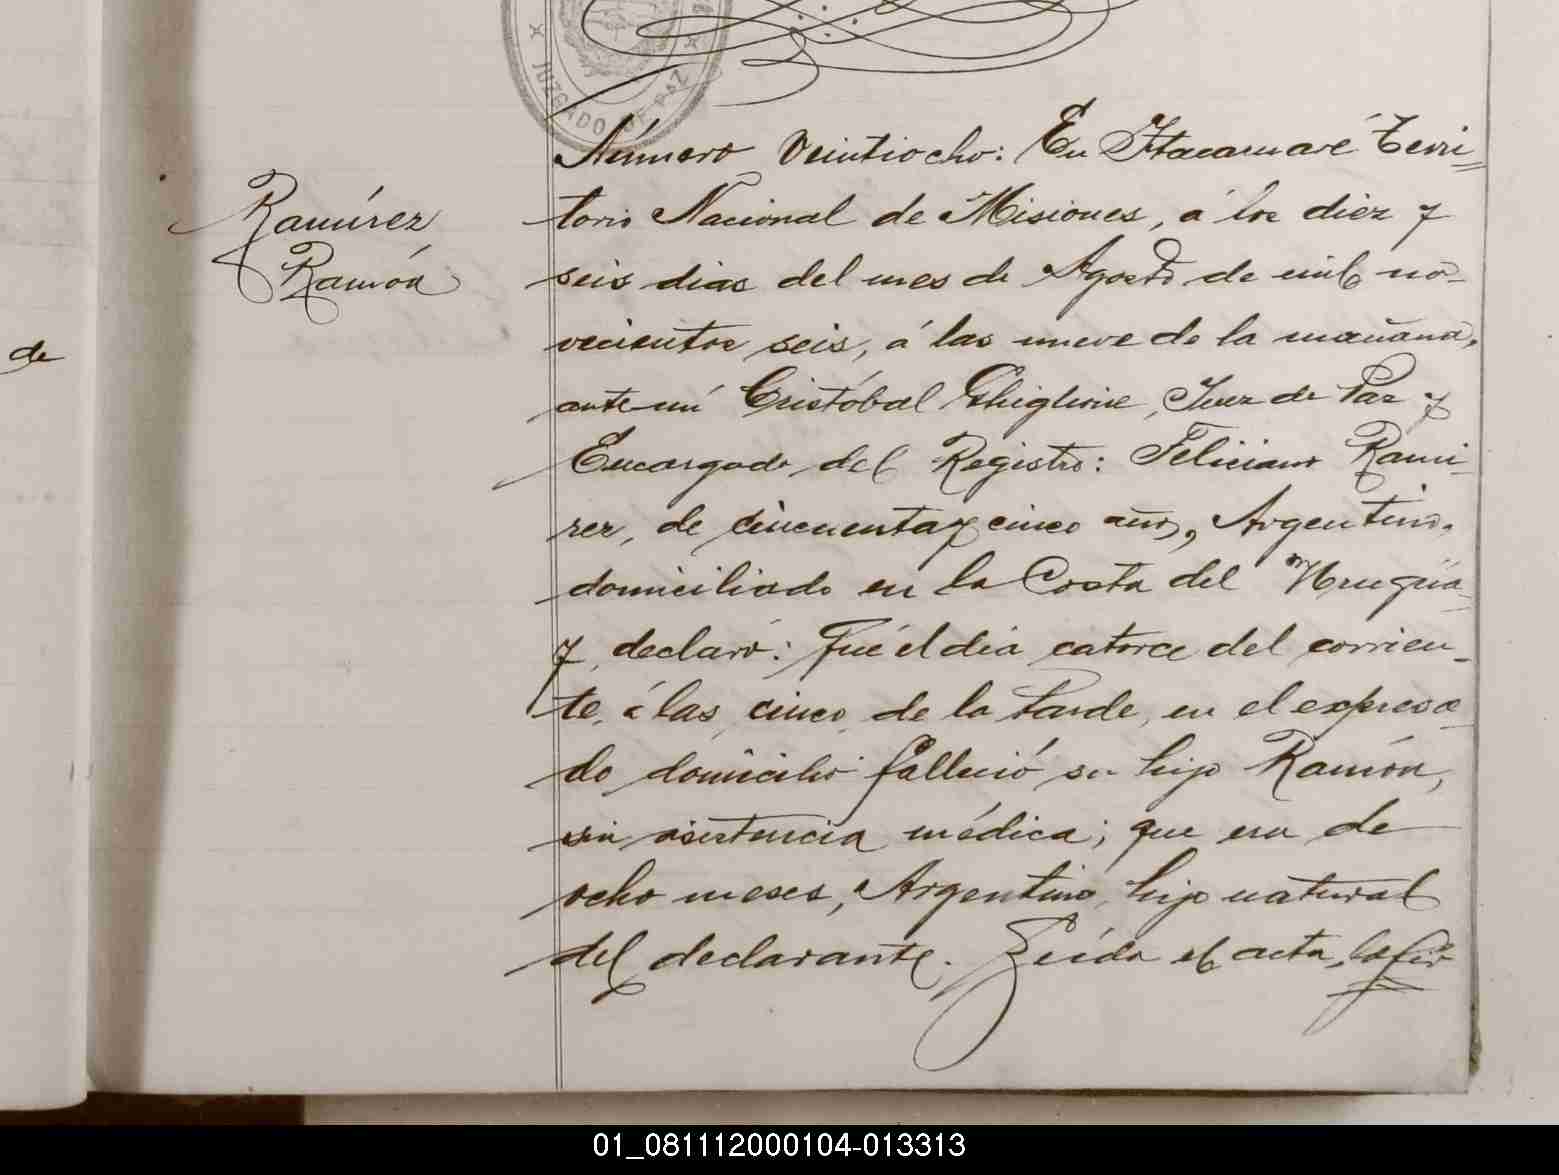 JUZGADO DE PAZ
Número Veintiocho: En Itacaruaré Terri-
Ramírez
torio Nacional de Misiones, á los diez y
Ramón
seis dias del mes de Agosto de mil no-
vecientos seis, á las nueve de la mañana,
de
ante mí Cristóbal Ghiglione, Juez de Paz y
Encargado del Registro: Feliciano Rami-
rez, de cincuenta y cinco años, Argentino,
domiciliado en la Costa del Uruguay
y declaró: Que el dia catorce del corrien-
te, á las cinco de la tarde, en el expresa-
do domicilio falleció su hijo Ramón,
sin asistencia médica; que era de
ocho meses, Argentino, hijo natural
del declarante. Leída el acta, la fir
01_081112000104-013313